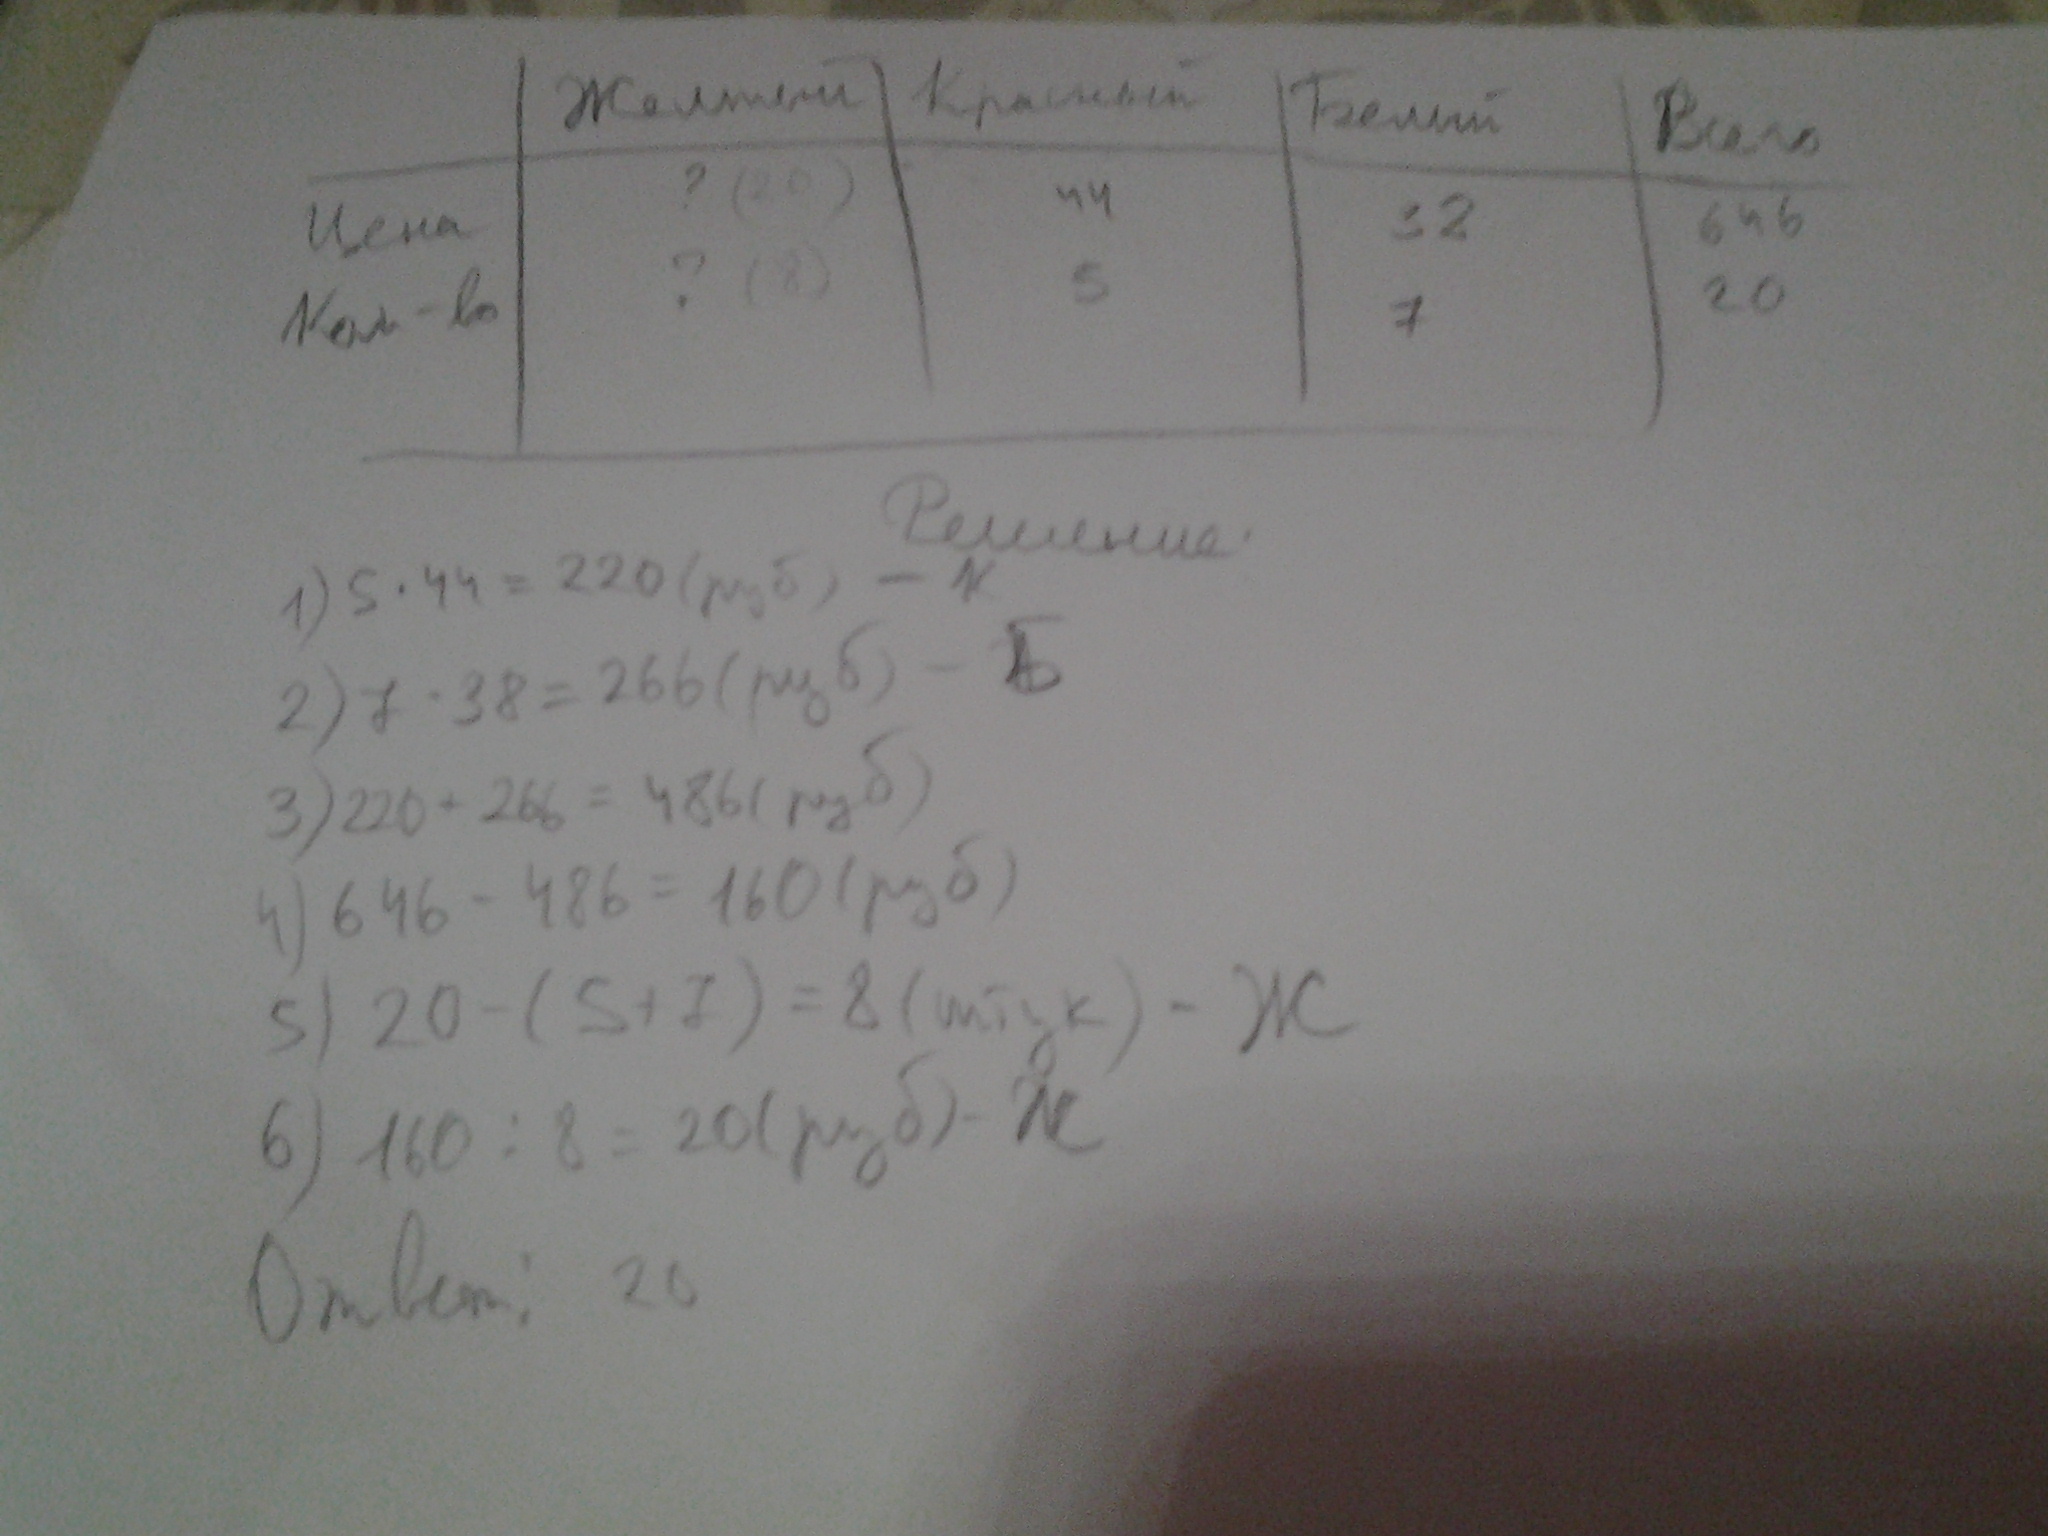 Желтый Красный Белый Всего
Цена ? (20) 44 38 646
Кол-во ? (8) 5 7 20
Решение.
1) 5·44 = 220 (руб) – К
2) 7·38 = 266 (руб) – Б
3) 220 + 266 = 486 (руб)
4) 646 - 486 = 160 (руб)
5) 20 - (5+7) = 8 (штук) - Ж
6) 160 : 8 = 20 (руб) - Ж
Ответ: 20